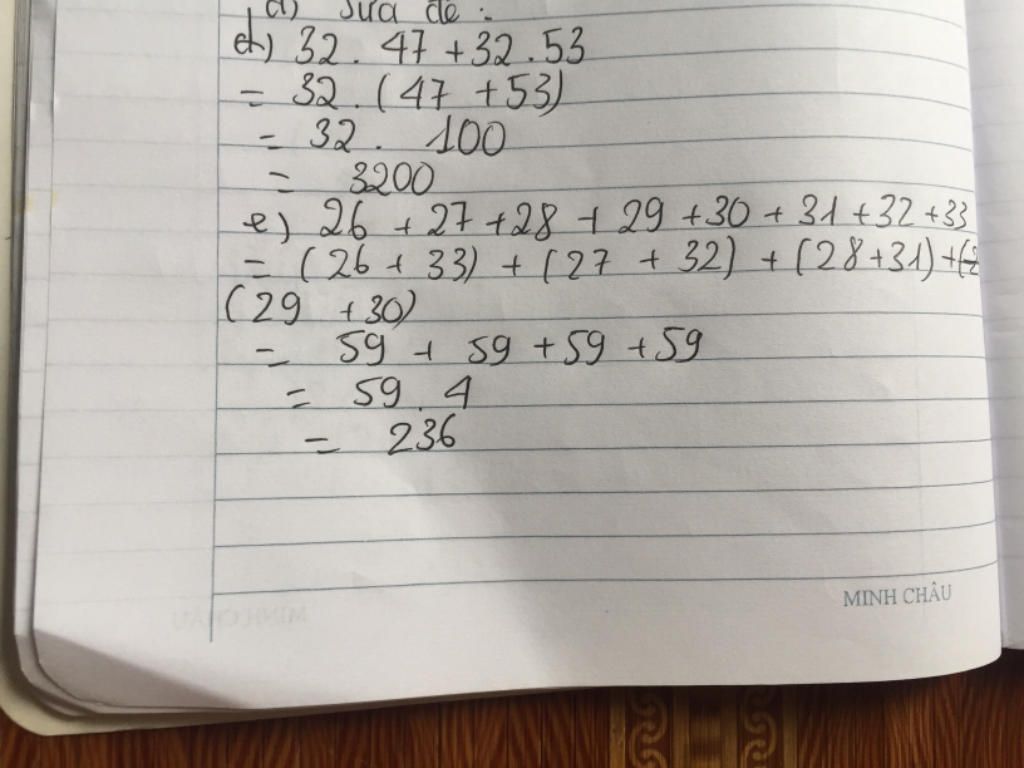 d) Sửa đề:
d) 32 . 47 + 32 . 53
= 32 . (47 + 53)
= 32 . 100
= 3200
e) 26 + 27 + 28 + 29 + 30 + 31 + 32 + 33
= (26 + 33) + (27 + 32) + (28 + 31) +
(29 + 30)
= 59 + 59 + 59 + 59
= 59 . 4
= 236
MINH CHÂU